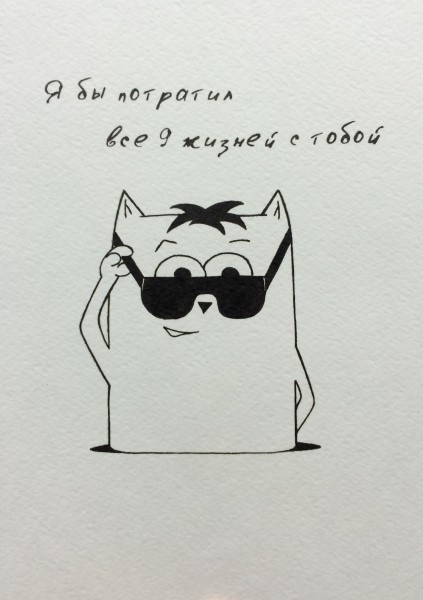 Я бы потратил
все 9 жизней с тобой